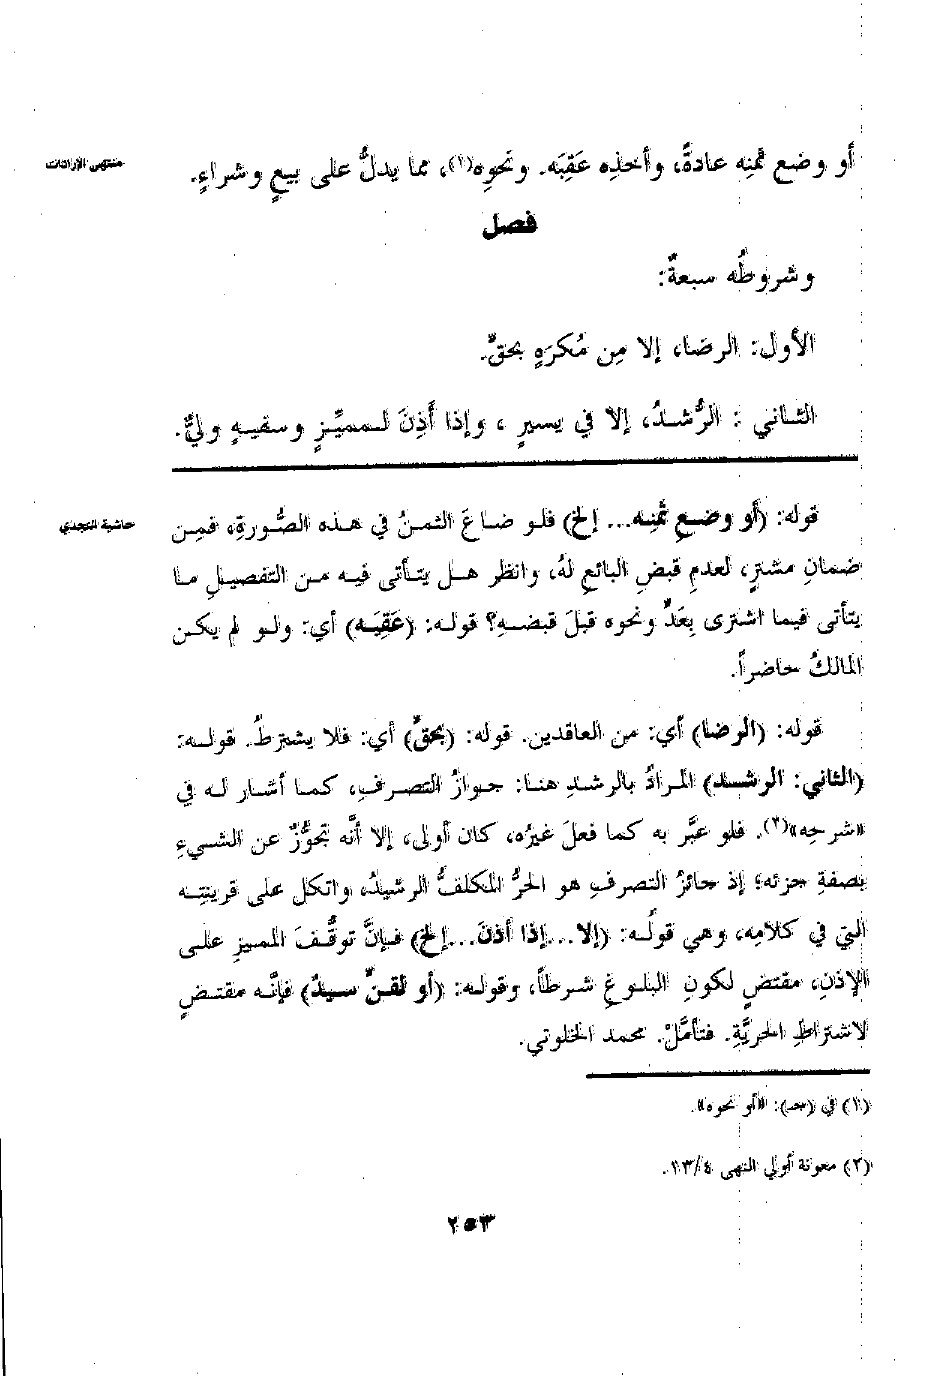 منتهى الإرادات
أو وضع ثمنِه عادةً، وأخذِه عَقِبَه. ونحوِه(١)، مما يدلُّ على بيعٍ وشراءٍ.
فصل
وشروطُه سبعةٌ:
الأول: الرضا، إلا مِن مُكرَهٍ بحقٍّ.
الثـاني : الرُّشـدُ، إلا في يسيرٍ ، وإذا أَذِنَ لـمميِّـزٍ وسفيـهٍ وليٌّ.
حاشية النجدي
قوله: (أو وضـعِ ثمنِـه... إلخ) فلـو ضـاعَ الثمنُ في هـذه الصُّـورةِ، فمِـن
ضمانِ مشترٍ، لعدمِ قبضِ البائعِ لهُ، وانظر هـل يتـأتى فيـه مـن التفصيـلِ مـا
يتأتى فيما اشترى بِعَدٍّ ونحوه قبلَ قبضـهِ؟ قولـه: (عَقِبَـه) أي: ولـو لم يكـن
المالكُ حاضراً.
قوله: (الرضا) أي: من العاقدين. قوله: (بحقٍّ) أي: فلا يشترطُ. قولـه:
(الثاني: الرشـد) المـرادُ بالرشـدِ هنـا: جـوازُ التصـرفِ، كمـا أشـار لـه في
«شرحِه»(٢). فلو عبَّر به كما فعلَ غيرُه، كان أولى، إلا أنَّه تجوَّزَ عن الشـيءِ
بصفةِ جزئه؛ إذ جائزُ التصرفِ هو الحرُّ المكلفُ الرشيدُ، واتكل على قرينتِـه
التي في كلامِه، وهي قولُـه: (إلا...إذا أذنَ...إلخ) فـإنَّ توقُّـفَ المميزِ علـى
الإذنِ، مقتضٍ لكونِ البلـوغِ شرطاً، وقولـه: (أو لقنٍّ سـيدٌ) فإنَّـه مقتـضٍ
لاشتراطِ الحريَّةِ. فتأمَّلْ. محمد الخلوتي.
(١) في (جـ): «أو نحوه».
(٢) معونة أولي النهى ١٣/٤.
٢٥٣